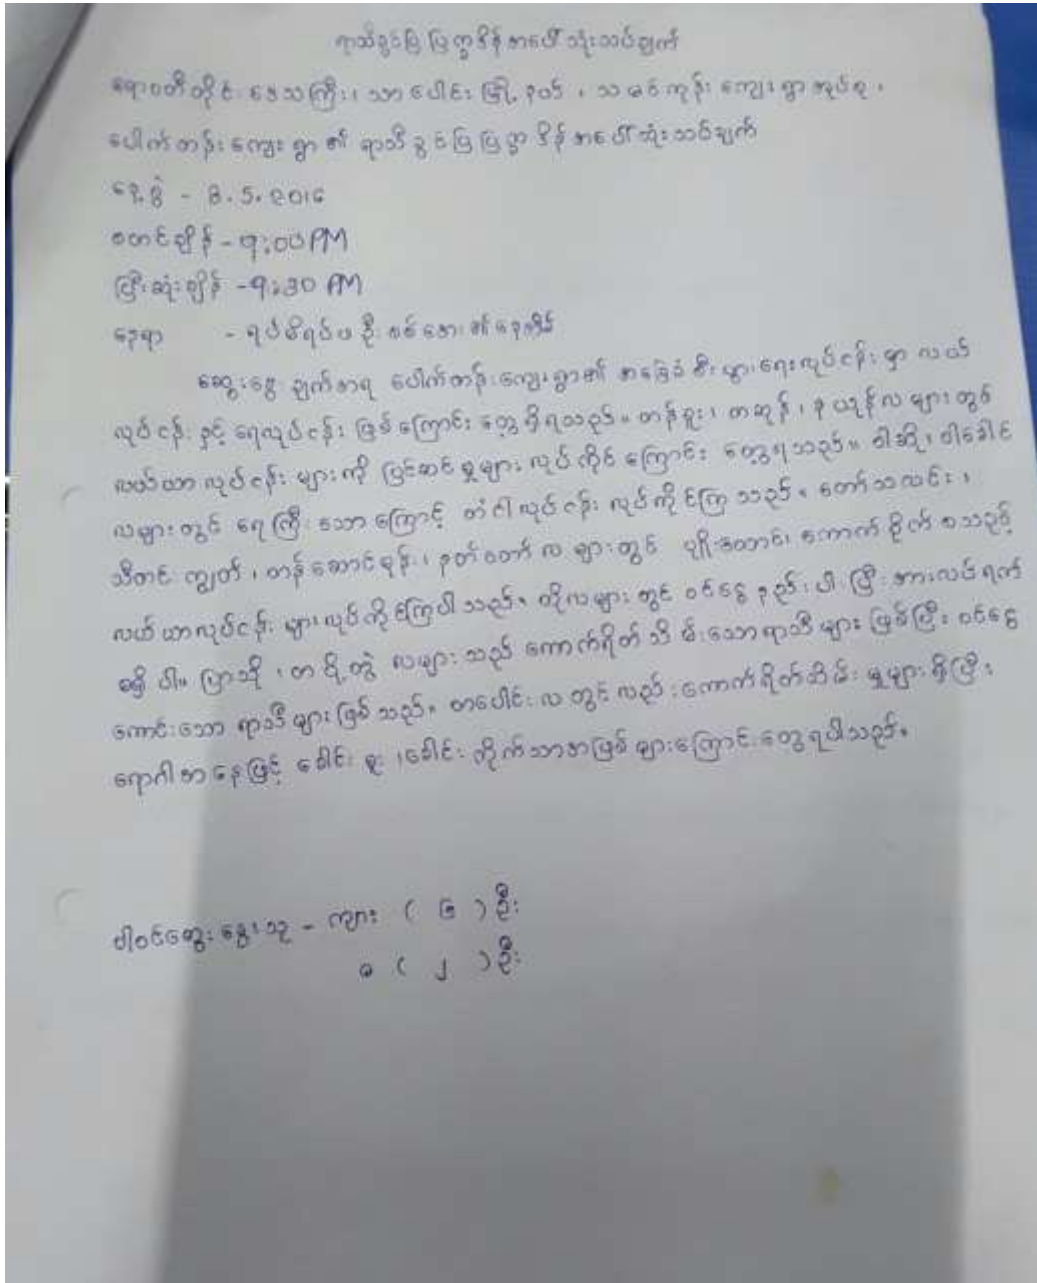 ရာသီခွင်ပြ ပြက္ခဒိန် အပေါ် သုံးသပ်ချက်
ဧရာဝတီတိုင်းဒေသကြီး၊ သာပေါင်းမြို့နယ်၊ သမင်ကုန်းကျေးရွာအုပ်စု၊
ပေါက်တန်းကျေးရွာ၏ ရာသီခွင်ပြပြက္ခဒိန်အပေါ်သုံးသပ်ချက်
နေ့စွဲ - 8.5.၉၀၊၆
စတင်ချိန် - ၅:00PM
ပြီးဆုံးချိန် - ၅:30 PM
နေရာ - ရပ်မိရပ်ဖ ဦး စစ်အေး ၏ နေအိမ်
ဆွေးနွေးချက်အရ ပေါက်တန်းကျေးရွာ၏ အခြေခံစီးပွားရေးလုပ်ငန်းမှာ လယ်
လုပ်ငန်း နှင့် ရေလုပ်ငန်း ဖြစ်ကြောင်း တွေ့ရှိရသည်။ တန်ခူး၊ ကဆုန်၊ နယုန်လများတွင်
လယ်ယာလုပ်ငန်းများကို ပြင်ဆင်မှုများ လုပ်ကိုင်ကြောင်း တွေ့ရသည်။ ဝါဆို၊ ဝါခေါင်
လများတွင် ရေကြီးသောကြောင့် တံငါလုပ်ငန်း လုပ်ကိုင်ကြသည်။ တော်သလင်း၊
သီတင်းကျွတ်၊ တန်ဆောင်မုန်း၊ နတ်တော်လများတွင် ပျိုးထောင်၊ ကောက်စိုက် စသည့်
လယ်ယာလုပ်ငန်းများလုပ်ကိုင်ကြပါသည်။ ထိုလများတွင် ဝင်ငွေနည်းပါးပြီး အားလပ်ရက်
မရှိပါ။ ပြာသို၊ တပို့တွဲ လများသည် ကောက်ရိတ်သိမ်းသောရာသီများ ဖြစ်ပြီး ဝင်ငွေ
ကောင်းသော ရာသီများဖြစ်သည်။ တပေါင်းလတွင်လည်း ကောက်ရိတ်သိမ်းမှုများရှိပြီး
ရောဂါအနေဖြင့် ခေါင်းမူး၊ ခေါင်းကိုက်သာအဖြစ်များကြောင်းတွေ့ရပါသည်။
ပါဝင်ဆွေးနွေးသူ - ကျား ( ၆ ) ဦး
မ ( ၂ ) ဦး